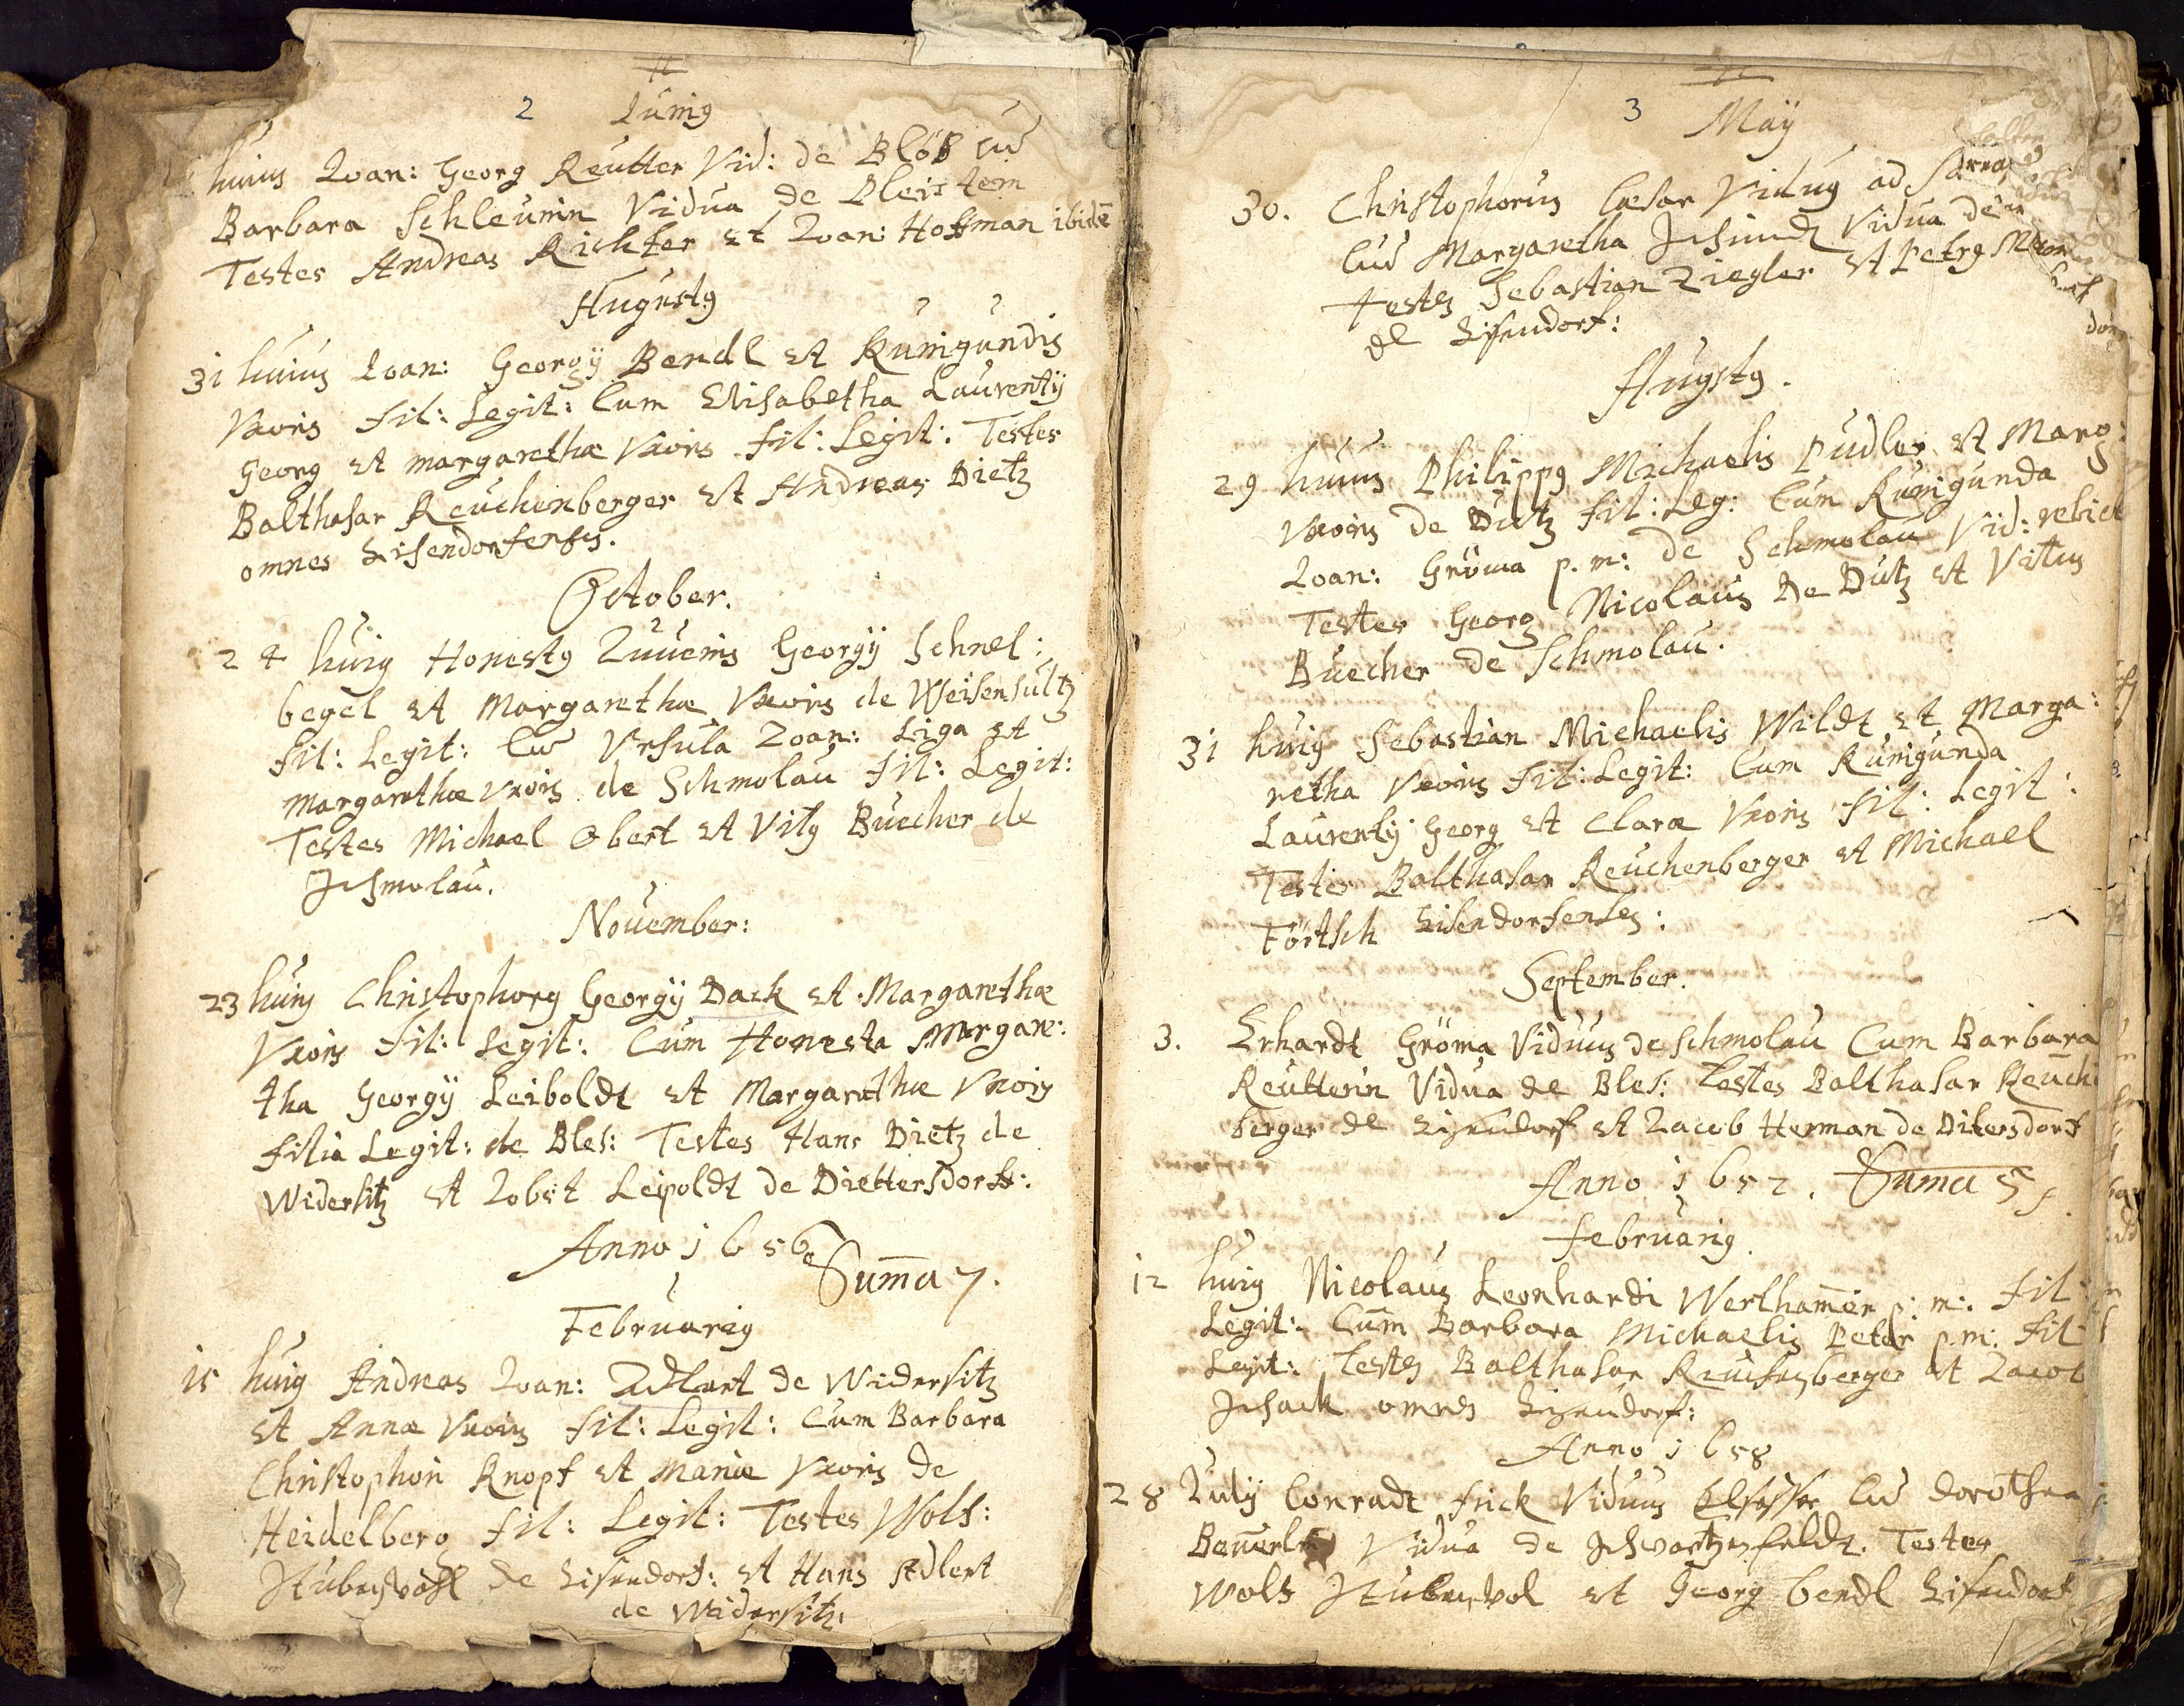 2 Junig
huius Joan: Georg Reütter Vid: de Blöß cu
Barbara Schleunin Vidua de Pleistem
Testes Andreas Richter et Joan: Hoffman ibide
Augustg
31 huius Joan: Georgÿ Bendl et Kunigundis
Vxoris fil: Legit: Cum Elisabetha Laurentÿ
Georg et margarethæ Vxoris fil: Legit: Testes
Balthasar Reüchenberger et Andreas Dietz
omnes Eisendorfenses.
October.
24 huig Honestg Juuenis Georgÿ Schnel:
begel et Margarethæ Vxoris de Weisensultz
fil: Legit: Cu Vrsula Joan: Liga et
Margarethæ vxoris de Schmolau fil: Legit:
Testes Michael Obert et Vitg Buecher de
Schmolau.
November:
23 huig Christophorg Georgÿ Dack et Margarethæ
Vxoris fil: Legit: Cum Honesta Margare:
tha Georgÿ Leiboldt et Margarethæ Vxoris
filia Legit: de Bles: Testes Hans Dietz de
Widersitz et Jobst Leipoldt de Diettersdorff:
Anno 1656
Suma 7.
Februarig
15 huig Andreas Joan: Adlert de Widersitz
et Annæ Vxoris fil: Legit: Cum Barbara
Christophori Knopf et Mariæ Vxoris de
Heidelberg fil: Legit: Testes Wolf:
Stubenvohl de Eisendorf: et Hans Adlert
de Widersitz
3 Maÿ
30. Christophorus Cæsar Vidug ad
Cu Margaretha Schmidt Vidua de
Testes Sebastian Ziegler et Petrg
de Eisendorf:
Augstg.
29 huius Philippg Michaelis Pudler et Marg:
Vxoris de Dutz fil: Leg: Cum Kunigunda
Joan: Gröma p. m: de Schmolau Vid: relict
Testes Georg Nicolaus de Dutz et Vitus
Buecher de Schmolau.
31 huig Sebastian Michaelis Wildt et Marga:
retha Vxoris fil: Legit: Cum Kunigunda
Laurentÿ Georg et Claræ Vxoris fil: Legit:
Testes Balthasar Reuchenberger et Michael
Förtsch Eisendorfenses:
September.
3. Erhardt Gröma Viduus de Schmolau Cum Barbara
Reutterin Vidua de Bles: Testes Balthasar Reuch
berger de Eisendorf et Jacob Herman de Ditersdorf
Anno 1657. Suma 5
Februarig.
12 huig Nicolaus Leonhardi Werthamer p: m: fil:
Legit: Cum Barbara Michaelis Peter p. m: fil
Legit: Testes Balthasar Reuchenberger et Jacob
Schack omnes Eisendorf:
Anno 1658
28 Julÿ Conradt Frick Viduus Elsesser Cu Dorothea
Vidua de Schwartzenfeldt. Testes
Wolf Stubenvol et Georg bendl Eisendorf